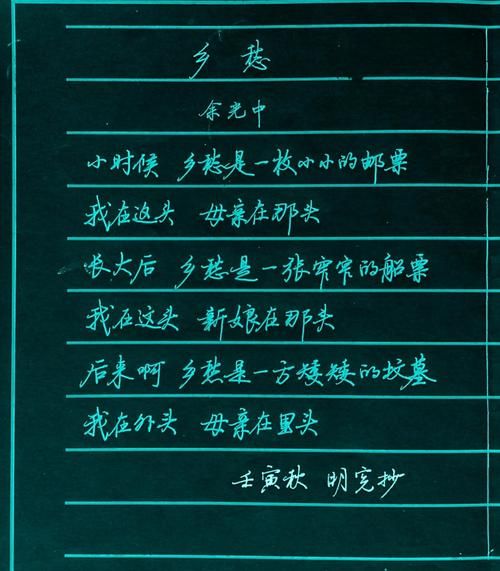 乡愁
余光中
小时候 乡愁是一枚小小的邮票
我在这头 母亲在那头
长大后 乡愁是一张窄窄的船票
我在这头 新娘在那头
后来啊 乡愁是一方矮矮的坟墓
我在外头 母亲在里头
壬寅秋 明宪抄